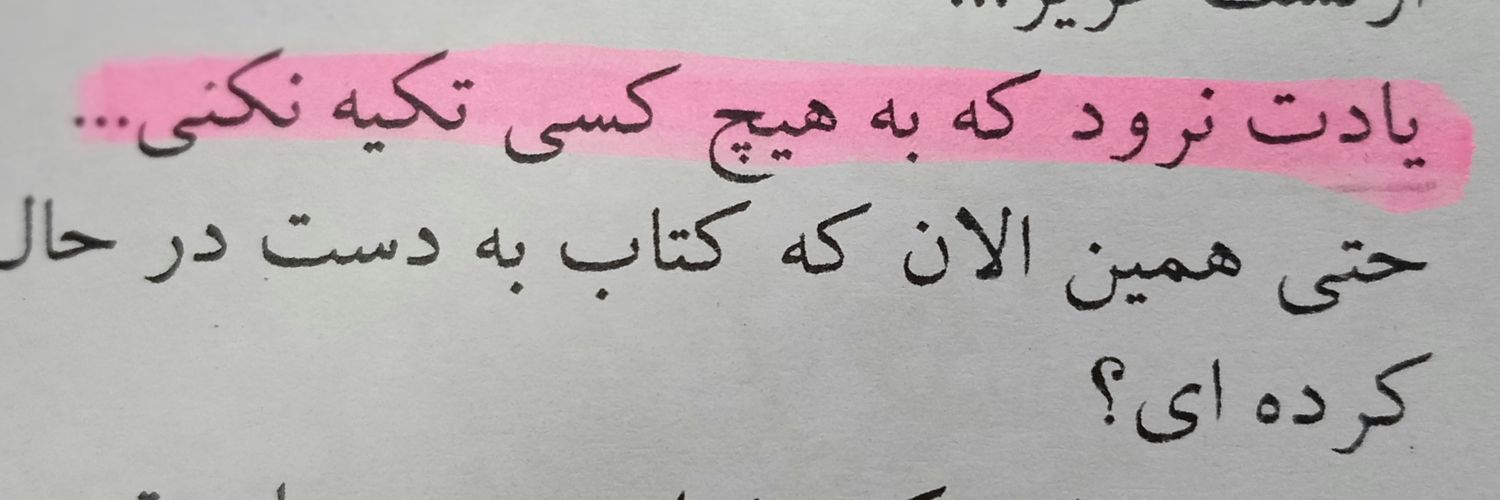 یادت نرود که به هیچ کسی تکیه نکنی...
حتی همین الان که کتاب به دست در حال
کرده ای؟